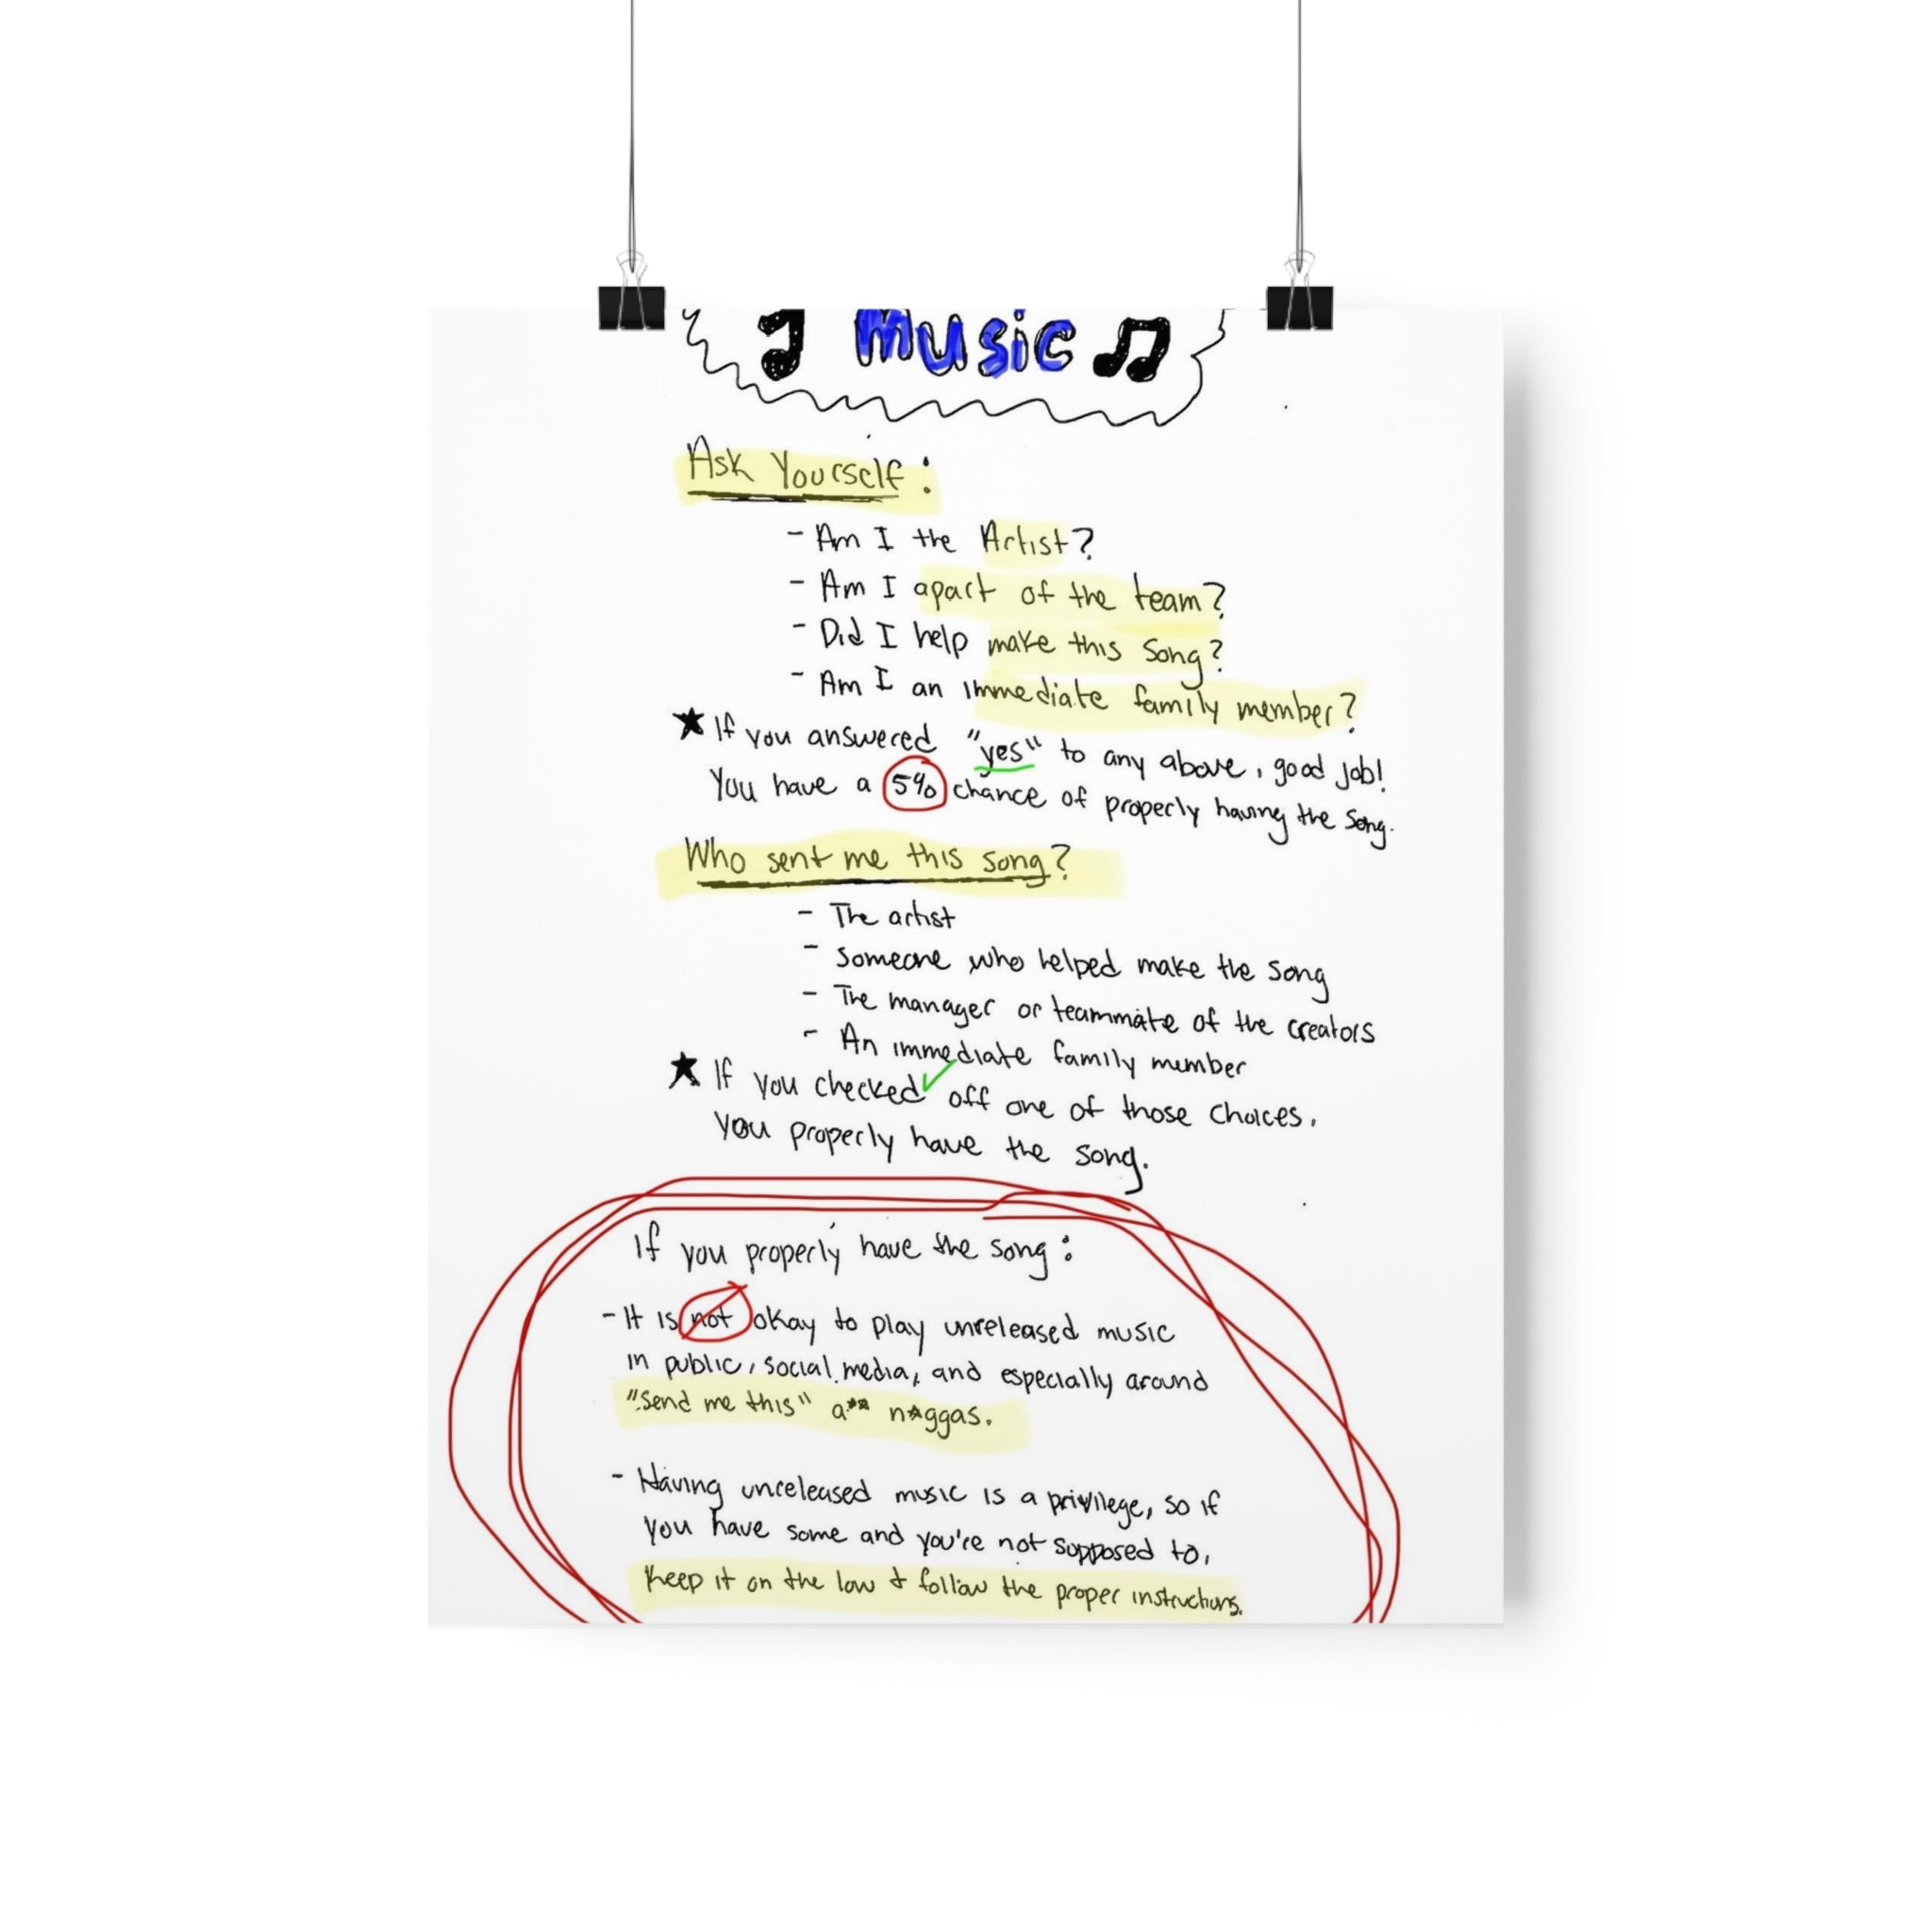 Music
Ask Yourself:
- Am I the Artist?
- Am I apart of the team?
- Did I help make this song?
- Am I an immediate family member?
★ If you answered "yes" to any above, good job!
You have a 5% chance of properly having the song.
Who sent me this song?
- The artist
- Someone who helped make the song
- The manager or teammate of the creators
- An immediate family member
★ If you checked ✓ off one of those choices,
you properly have the song.
If you properly have the song:
- It is not okay to play unreleased music
in public, social media, and especially around
"Send me this" a** n*ggas.
- Having unreleased music is a privilege, so if
you have some and you're not supposed to,
keep it on the low & follow the proper instructions.